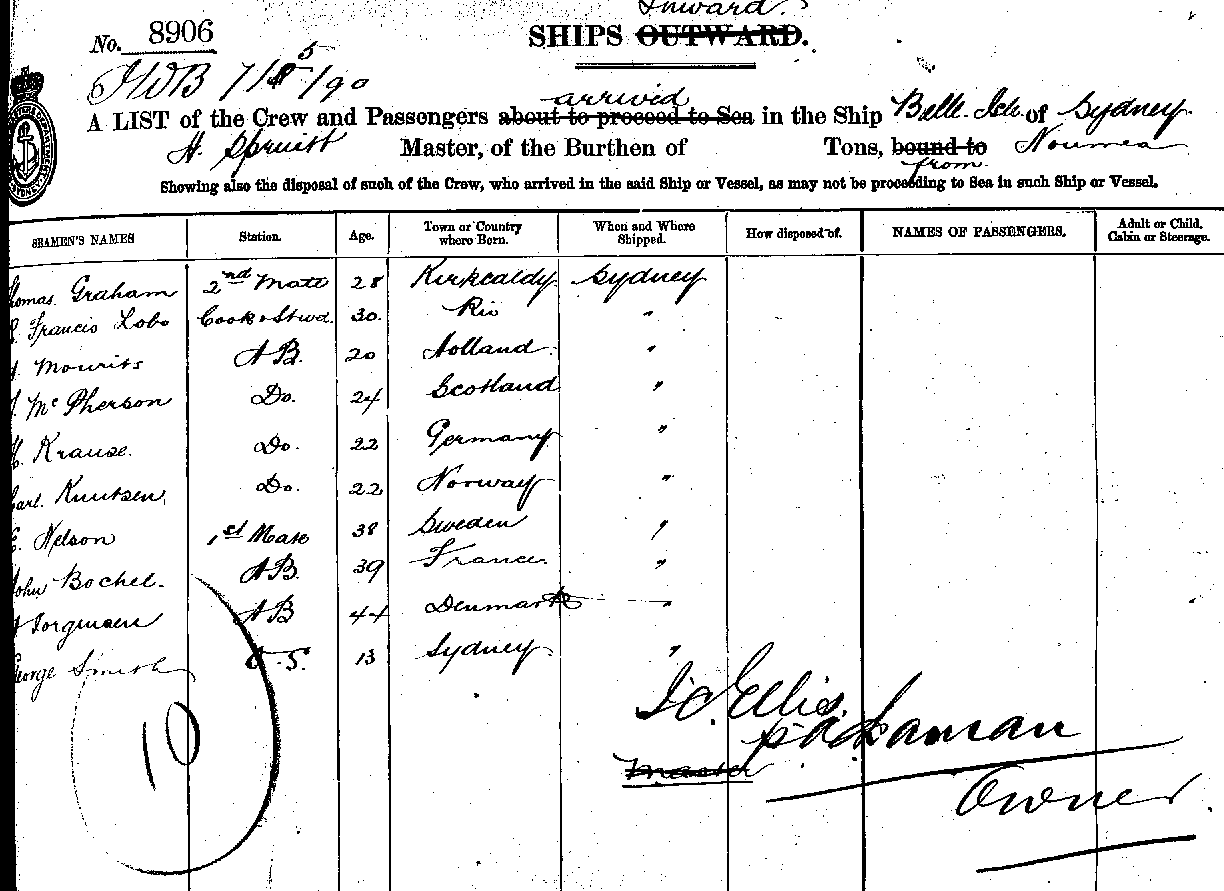 Inward.
No. 8906 SHIPS OUTWARD.
JWB 7/5/90
arrived
A LIST of the Crew and Passengers about to proceed to Sea in the Ship Belle Isle of Sydney
H. Spruitt Master, of the Burthen of Tons, bound to Noumea
from
Showing also the disposal of such of the Crew, who arrived in the said Ship or Vessel, as may not be proceeding to Sea in such Ship or Vessel.
SEAMEN'S NAMES Station. Age. Town or Country where Born. When and Where Shipped. How disposed of. NAMES OF PASSENGERS. Adult or Child, Cabin or Steerage.
homas Graham 2nd Mate 28 Kirkcaldy Sydney
Francis Lobo Cook & Stwd. 30 Rio "
Mourits AB. 20 Holland "
McPherson Do. 24 Scotland "
Krause. Do. 22 Germany "
arl Knutsen Do. 22 Norway "
Nelson 1st Mate 38 Sweden "
ohn Bochel. AB. 39 France "
Jorgensen AB 44 Denmark "
eorge Smith O.S. 13 Sydney "
10
J C Ellis.
Master
Owner